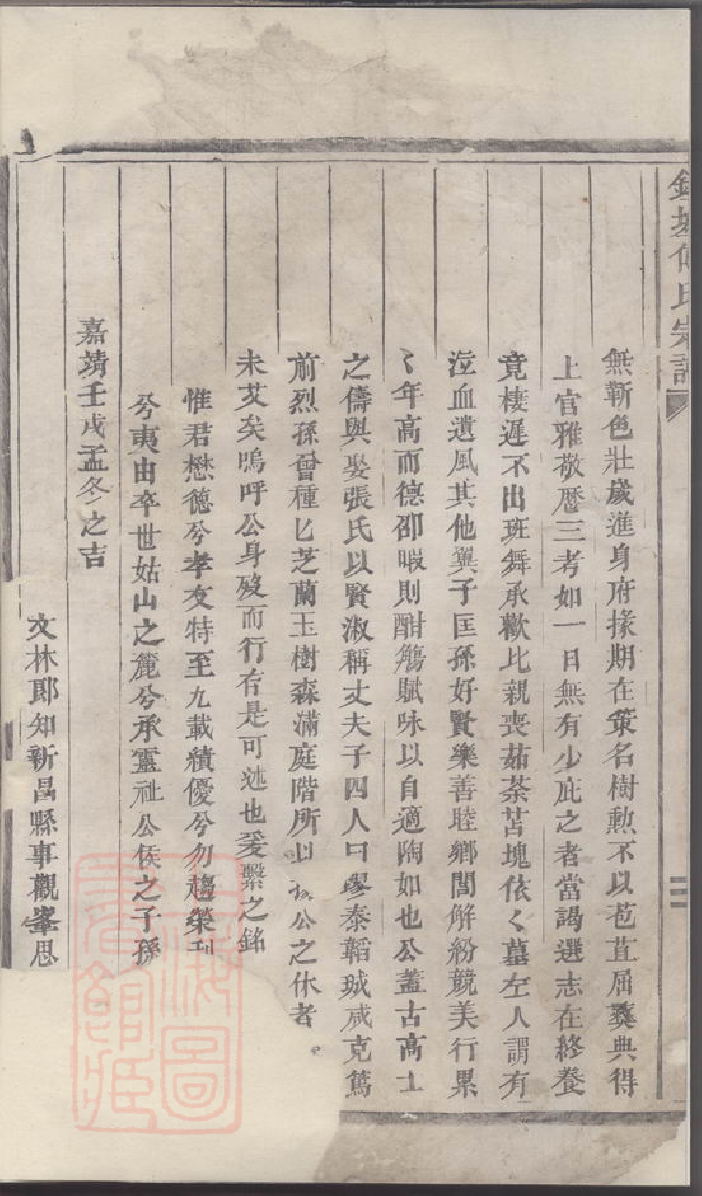 氏宗譜
無靳色壯歲進身府掾期在策名樹勲不以苞苴屈彝典得
上官雅敬歷三考如一日無有少庛之者當謁選志在終養
竟棲遲不出班舞承歡比親喪茹荼苫塊依〱墓左人謂有
泣血遺風其他翼子匡孫好賢樂善睦鄉閭解紛競美行累
〱年高而德卲暇則酣觴賦咏以自適陶如也公蓋古高士
之儔與娶張氏以賢淑稱丈夫子四人曰泰韜珹咸克篤
前烈孫曾種〻芝蘭玉樹森滿庭階所以公之休者
未艾矣嗚呼公身歿而行有是可述也爰繫之銘
惟君懋德兮孝友特至九載績優兮勿趨榮利
兮夷由卒世姑山之麓兮承靈祉公侯之子孫
嘉靖壬戌孟冬之吉
文林郎知新昌縣事觀峯思
上海圖書館藏